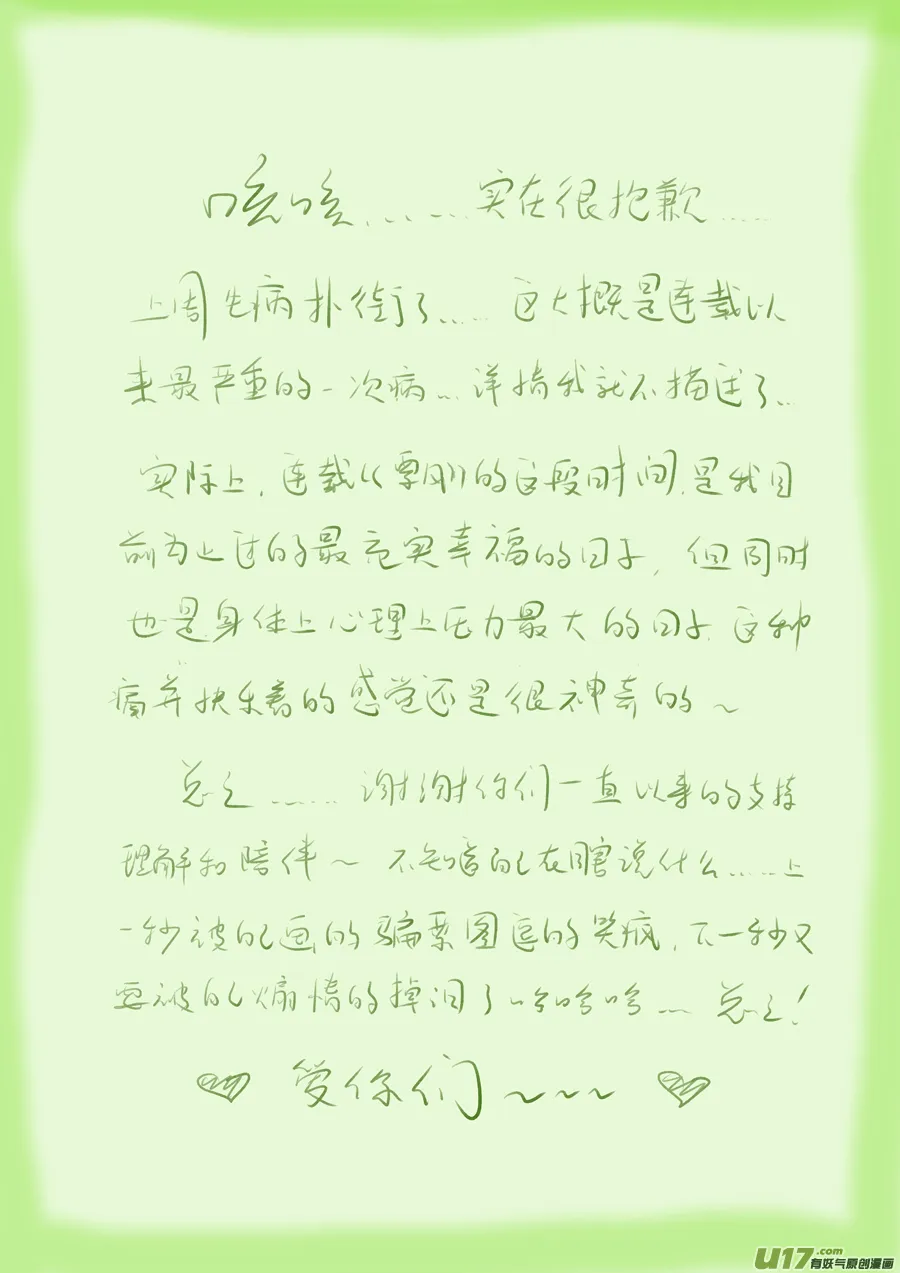 咳咳……实在很抱歉……
上周生病扑街了……这大概是连载以
来最严重的一次病…详情我就不描述了…
实际上,连载《栗刚》的这段时间,是我目
前为止过的最充实幸福的日子,但同时
也是身体上心理上压力最大的日子,这种
痛并快乐着的感觉还是很神奇的~
总之……谢谢你们一直以来的支持
理解和陪伴~不知道自己在瞎说什么……上
一秒被自己画的骗票图逗的哭疯,下一秒又
要被自己煽情的掉泪了哈哈哈…总之!
爱你们~~~
U17.com
有妖气原创漫画